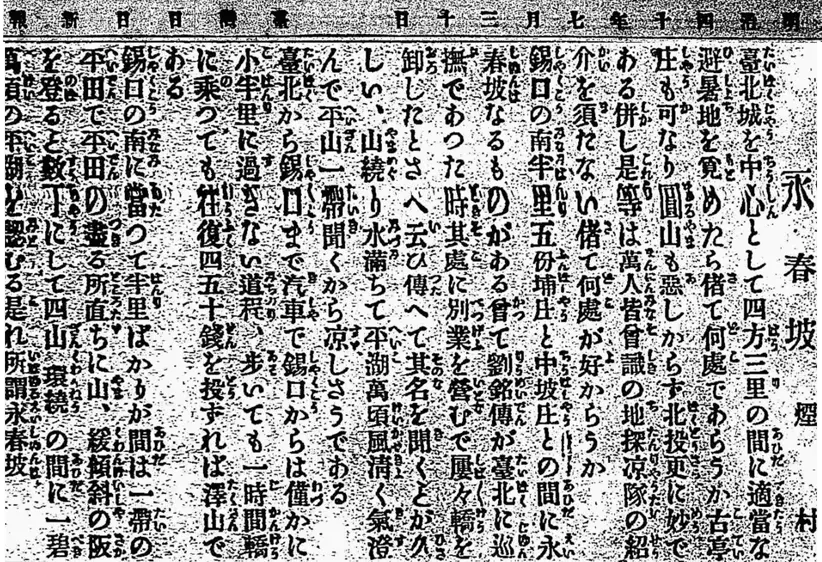 明治四十年七月三十日 臺灣日日新報
永春坡 煙村
臺北城を中心として四方三里の間に適當な
避暑地を覓めたら偖て何處であらうか古亭
庄も可なり圓山も惡しからず北投更に妙で
ある併し是等は萬人皆曾識の地探凉隊の紹
介を須たない偖て何處が好からうか
錫口の南半里五份埔庄と中坡庄との間に永
春坡なるものがある曾て劉銘傳が臺北に巡
撫であつた時其處に別業を營むで屢々轎を
卸したとさへ云ひ傳へて其名を聞くとが久
しい、山繞り水滿ちて平湖萬頃風淸く氣澄
んで平山一帶聞くから凉しさうである
臺北から錫口まで汽車で錫口からは僅かに
小半里に過ぎない道程、歩いても一時間轎
に乘つても往復四五十錢を投ずれば澤山で
ある
錫口の南に當つて半里ばかりが間は一帶の
平田で平田の盡る所直ちに山、緩傾斜の阪
を登ると數丁にして四山環繞の間に一碧
萬頃の平湖を認むる是れ所謂永春坡